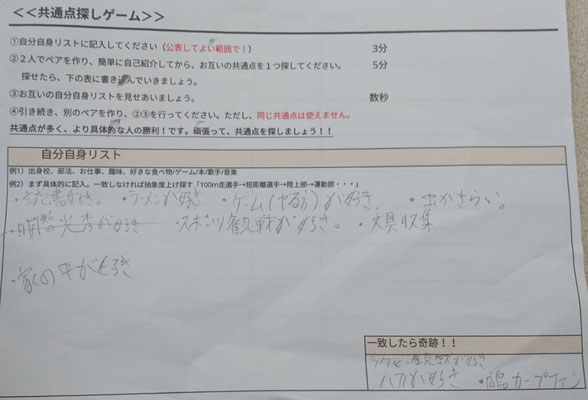 <<共通点探しゲーム>>
①自分自身リストに記入してください(公表してよい範囲で!) 3分
②2人でペアを作り、簡単に自己紹介してから、お互いの共通点を1つ探してください。 5分
探せたら、下の表に書き込んでいきましょう。
③お互いの自分自身リストを見せあいましょう。 数秒
④引き続き、別のペアを作り、②③を行ってください。ただし、同じ共通点は使えません。
共通点が多く、より具体的な人の勝利!です。頑張って、共通点を探しましょう!!
自分自身リスト
例1)出身校、部活、お仕事、趣味、好きな食べ物/ゲーム/本/歌手/音楽
例2)まず具体的に記入。一致しなければ抽象度上げ探す「100m走選手→短距離選手→陸上部→運動部・・・」
・読書好き。 ・ラーメンが好き ・ゲーム(する方)が好き。 ・虫がきらい。
・明智光秀が好き ・スポーツ観戦が好き。 ・文具収集
・家の中が好き
一致したら奇跡!!
ラグビー観戦が好き
ハカが好き ・広島カープファン